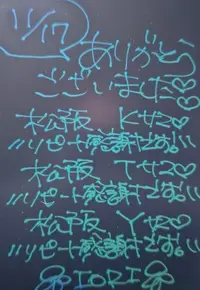 11/17
ありがとう
ございました♡♡
松阪 Kサン♡
リピート感謝です!!
松阪 Tサン♡
リピート感謝です!!
松阪 Yサン♡
リピート感謝です!!
IORI